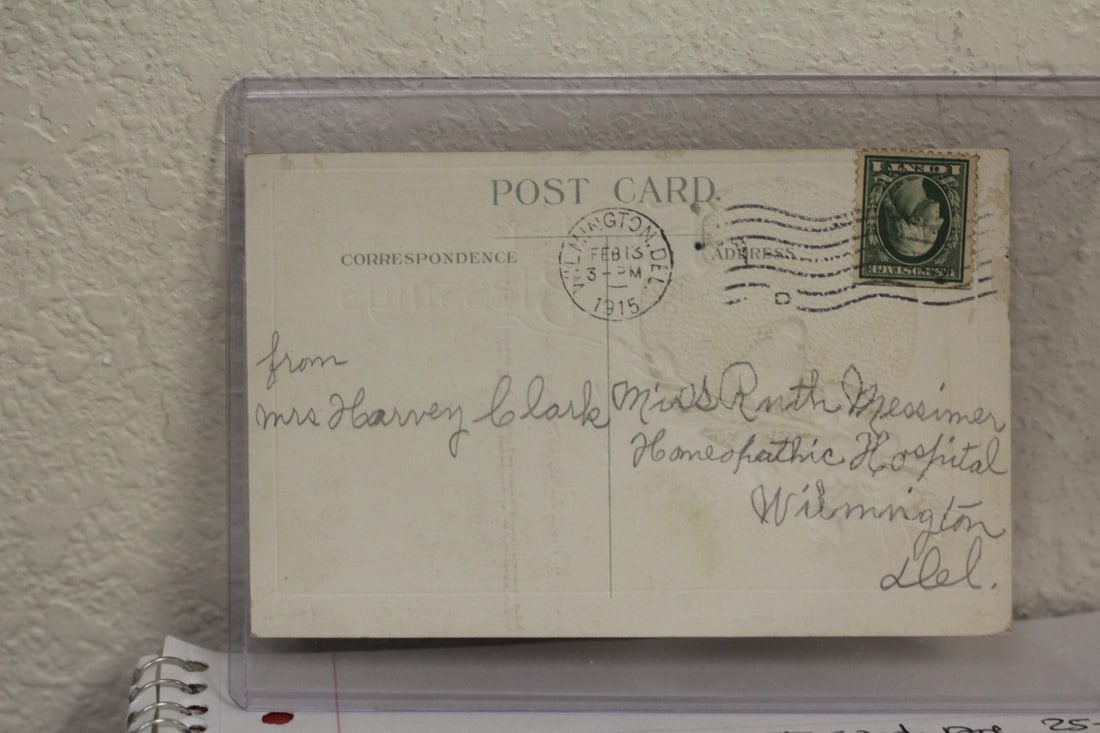 POST CARD.
WILMINGTON, DEL.
FEB 13
3-PM
1915
CORRESPONDENCE
ADDRESS
U.S. POSTAGE
1 ONE 1
from
Mrs Harvey Clark
Miss Ruth Messimer
Homeopathic Hospital
Wilmington
Del.
25-